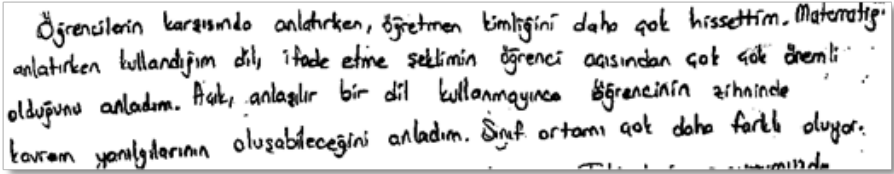 Öğrencilerin karşısında anlatırken, öğretmen kimliğini daha çok hissettim. Matematiği
anlatırken kullandığım dil, ifade etme şeklimin öğrenci açısından çok çok önemli
olduğunu anladım. Açık, anlaşılır bir dil kullanmayınca öğrencinin zihninde
kavram yanılgılarının oluşabileceğini anladım. Sınıf ortamı çok daha farklı oluyor.